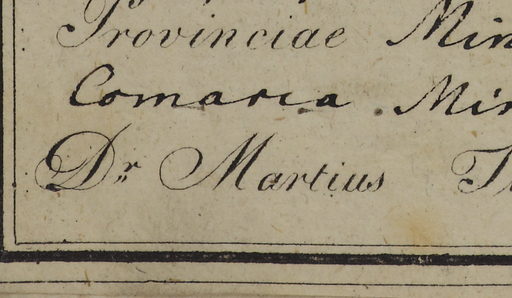 Provinciae Min
Comarca . Min
Dr Martius